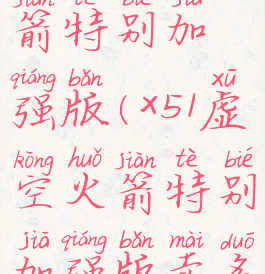 jiàn tè bié jiā
箭特别加
qiáng bǎn xū
强版(×51虚
kōng huǒ jiàn tè bié
空火箭特别
jiā qiáng bǎn mài duō
加强版卖多